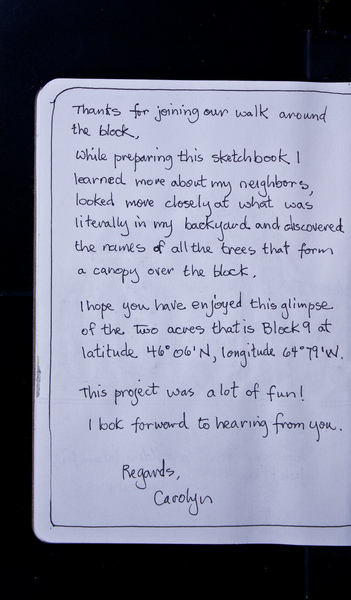 Thanks for joining our walk around
the block,
While preparing this sketchbook I
learned more about my neighbors,
looked more closely at what was
literally in my backyard and discovered
the names of all the trees that form
a canopy over the block.
I hope you have enjoyed this glimpse
of the two acres that is Block 9 at
latitude 46°06'N, longitude 64°79'W.
This project was a lot of fun!
I look forward to hearing from you.
Regards,
Carolyn